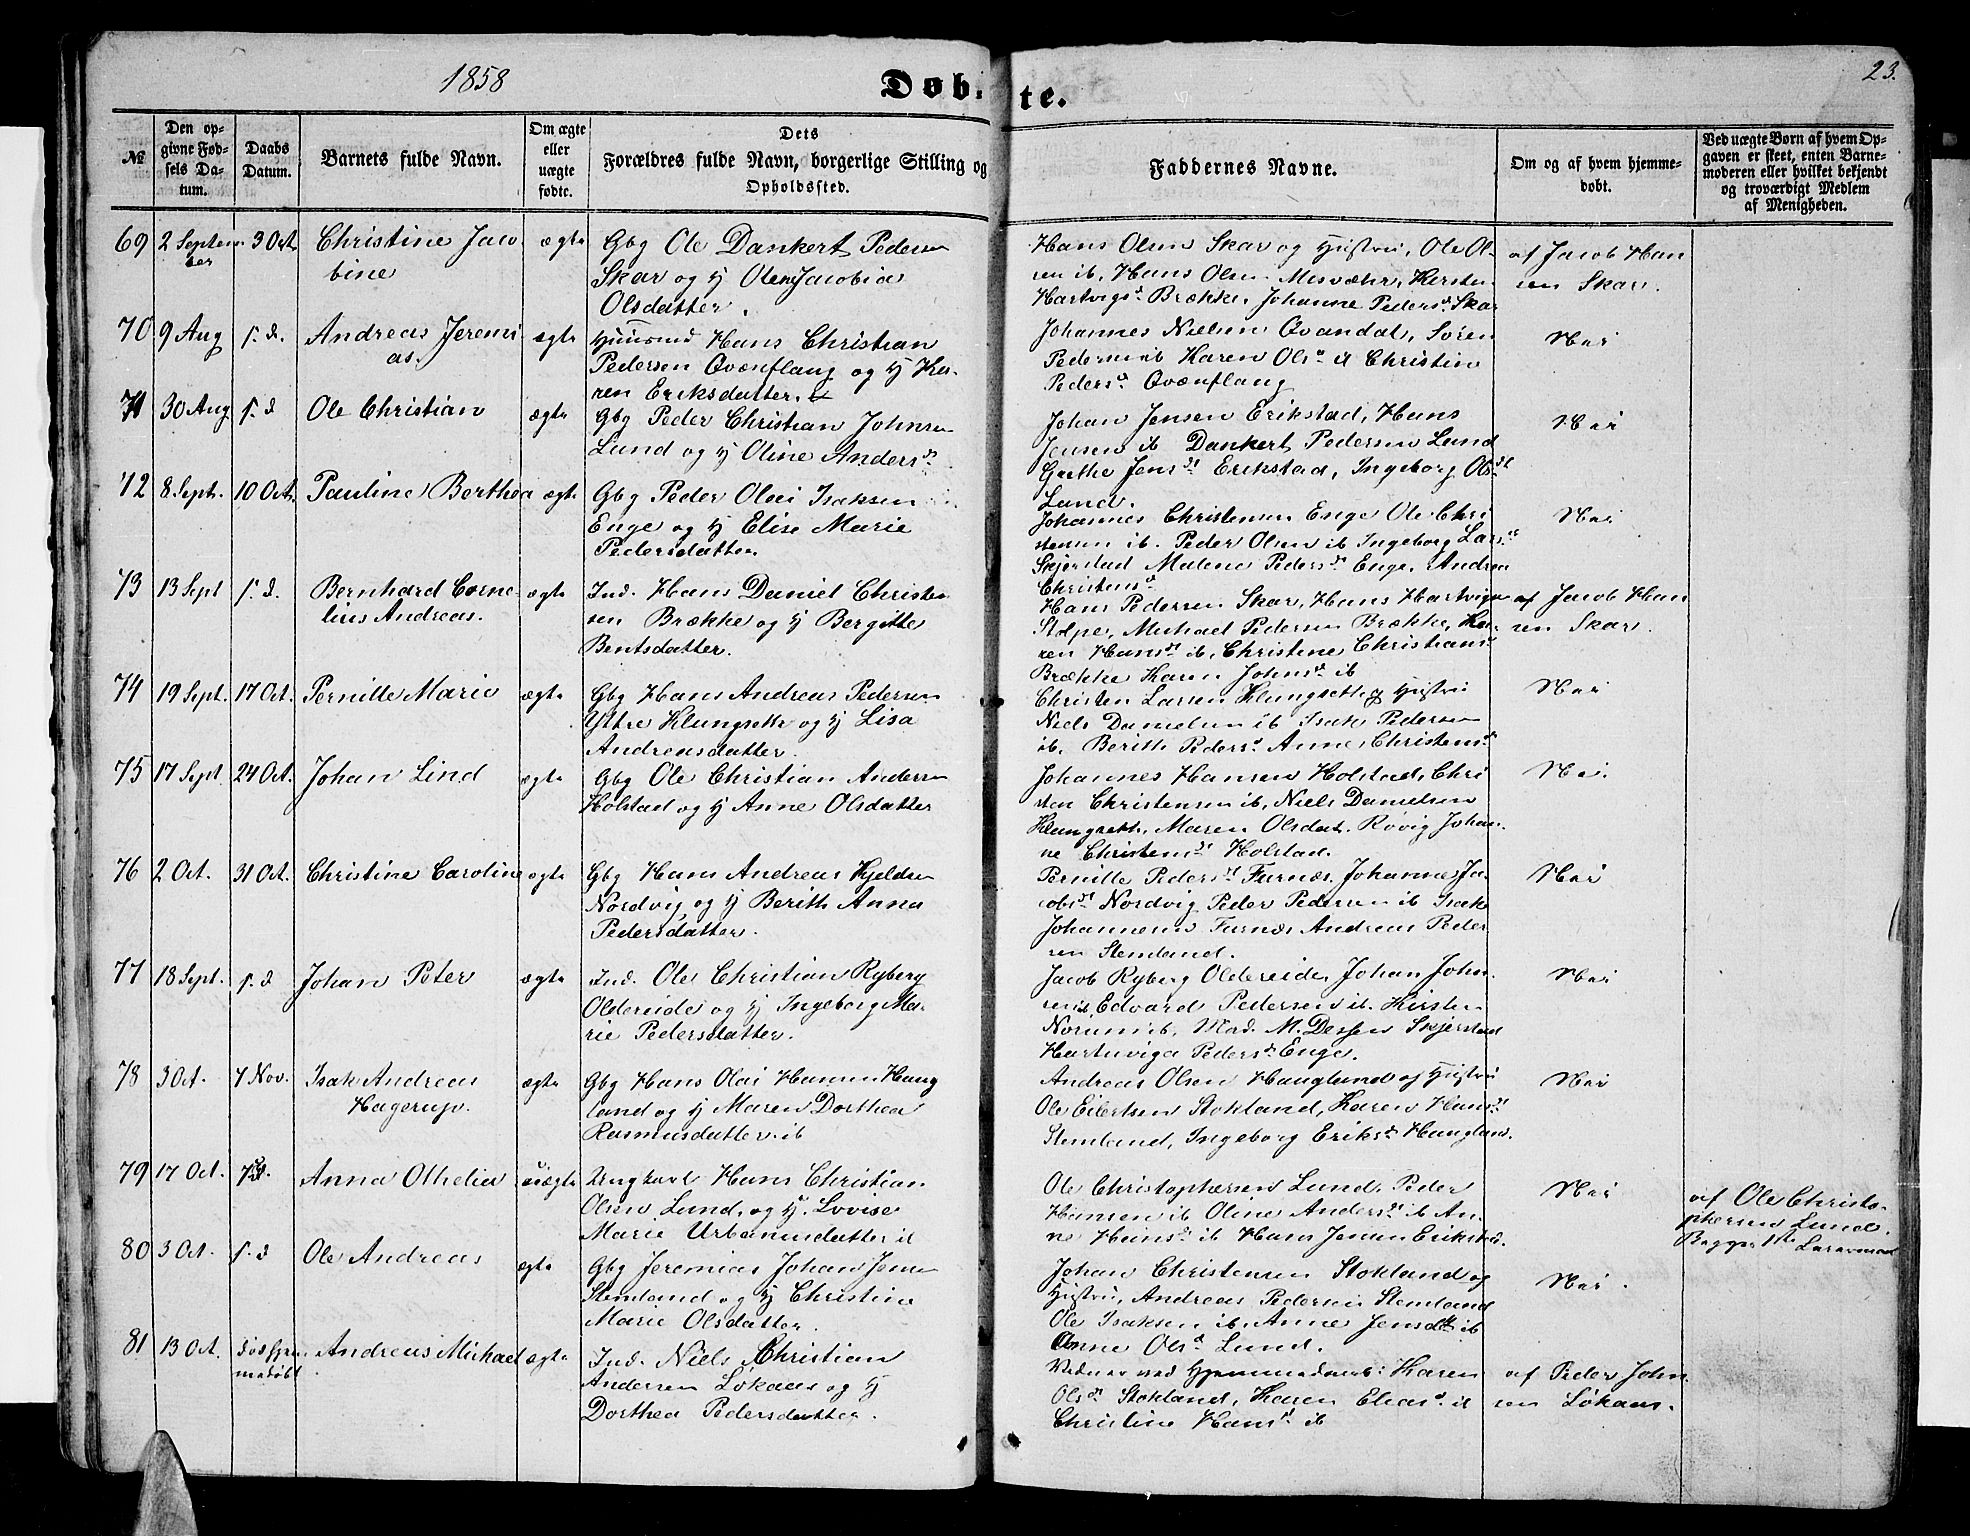 1858
Døb-
te.
23.
№
Den op-
givne Fød-
sels Da-
tum.
Daabs
Datum.
Barnets fulde Navn.
Om ægte
eller
uægte
fødte.
Dets
Forældres fulde Navn, borgerlige Stilling og
Opholdssted.
Faddernes Navne.
Om og af hvem hjemme-
døbt.
Ved uægte Børn af hvem Op-
gaven er skeet, enten Barne-
moderen eller hvilket bekjendt
og troværdigt Medlem
af Menigheden.
69 2 Septem-
ber
3 Oct.
Christine Jaco-
bine
ægte
Gbg Ole Dankert Pedersen
Skar og H Olen Jacobia
Olsdatter.
Hans Olsen Skar og Hustru, Ole Ol-
sen ib, Hans Olsen Misvæhr, Kersten
Hartvigsd. Brække, Johanne Pedersd. Skar
af Jacob Han
sen Skar.
70 9 Aug s. d.
Andreas Jeremi
as.
ægte
Huusmd Hans Christian
Pedersen Qvænflang og H Ka-
ren Eriksdatter.
Johannes Nielsen Qvandal, Søren
Pedersen ib Karen Olsd Christin
Pedersd. Qvænflang
Nei
71 30 Aug s. d
Ole Christian
ægte
Gbg Peder Christian Johnsen
Lund og H Oline Andersdt
Johan Jensen Erikstad, Hans
Jensen ib Dankert Pedersen Lund
Grethe Jensdt Erikstad, Ingeborg Olsdt
Lund.
Nei
72 8 Sept. 10 Oct.
Pauline Berthea
ægte
Gbg Peder Olai Isaksen
Enge og H Elise Marie
Pedersdatter
Johannes Christensen Enge Ole Chri
stensen ib. Peder Olsen ib Ingeborg Larsdt
Skjerstad Malena Pedersdt Enge, Andrea
Christensd
Nei
73 13 Sept s. d.
Bernhard Corne-
lius Andreas.
ægte
Ind. Hans Daniel Christen
sen Brække og H Bergitte
Bentsdatter.
Hans Pedersen Skar, Hans Hartvigsen
Stolpe, Michael Pedersen Brække, Ka-
ren Hansdt ib, Christine Christiansd
Brække Karen Johnsdt ib
af Jacob Han
sen Skar.
74 19 Sept. 17 Oct.
Pernille Marie
ægte
Gbg Hans Andreas Pedersen
Ytre Klungsette og H Lisa
Andreasdatter.
Christen Larsen Klungsette og Hustru
Niels Danielsen ib Isak Pedersen
ib. Berith Pedersd Anne Christensdt
Nei
75 17 Sept 24 Oct.
Johan Lind
ægte
Gbg Ole Christian Andersen
Holstad og H Anne Olsdatter
Johannes Hansen Holstad, Chri
sten Christensen ib, Niels Danielsen
Klungsett, Maren Olsdat. Røvig Johan-
ne Christensdt Holstad.
Nei.
76 2 Oct. 31 Oct.
Christine Caroline
ægte
Gbg Hans Andreas Kjeldsen
Nordvig og H Berith Anna
Pedersdatter.
Pernille Pedersdt Furnæs Johanne Ja-
cobsdt Nordvig Peder Pedersen ib Isak
Johannesen Furnæs Andreas Peder
sen Stemland.
Nei
77 18 Sept. s. d
Johan Peter
ægte
Ind. Ole Christian Ryberg
Oldereide og H Ingeborg Ma-
rie Pedersdatter.
Jacob Ryberg Oldereide, Johan John-
sen ib, Edvard Pedersen ib. Kirsten
Norum ib. Mad. M. Dessen Skjerstad
Hartviga Pedersd Enge.
Nei
78 3 Oct. 7 Nov.
Isak Andreas
Hagerup.
ægte
Gbg Hans Olai Hansen Haug
land og H Maren Dorthea
Rasmusdatter ib
Andreas Olsen Hauglund og Hustru
Ole Eilertsen Stokland, Karen Hansdt
Stemland, Ingeborg Eriksdt Haugland.
Nei
79 17 Oct. s. d.
Anna Othelia
uægte
Ungkarl Hans Christian
Olsen Lund, og H. Lovise
Marie Urbanusdatter ib
Ole Christophersen Lund, Peder
Hansen ib Oline Andersdt ib An-
ne Hansdt ib Hans Jensen Erikstad.
Nei
af Ole Christo-
phersen Lund.
80 3 Oct. s. d
Ole Andreas
ægte
Gbg Jeremias Johan Jensen
Stemland og H Christine
Marie Olsdatter.
Johan Christensen Stokland og
Hustru, Andreas Pedersen Stemland
Ole Isaksen ib. Anne Jensdt ib
Anne Olsd Lund.
Nei.
81 13 Oct.
madøbt
Andreas Michael
ægte
Ind. Niels Christian
Andersen Løkaas og H
Dorthea Pedersdatter.
Vidner ved Hjemmedaab: Karen
Olsdt Stokland, Karen Eliasd ib
Christine Hansdt ib
af Peder John
sen Løkaas.